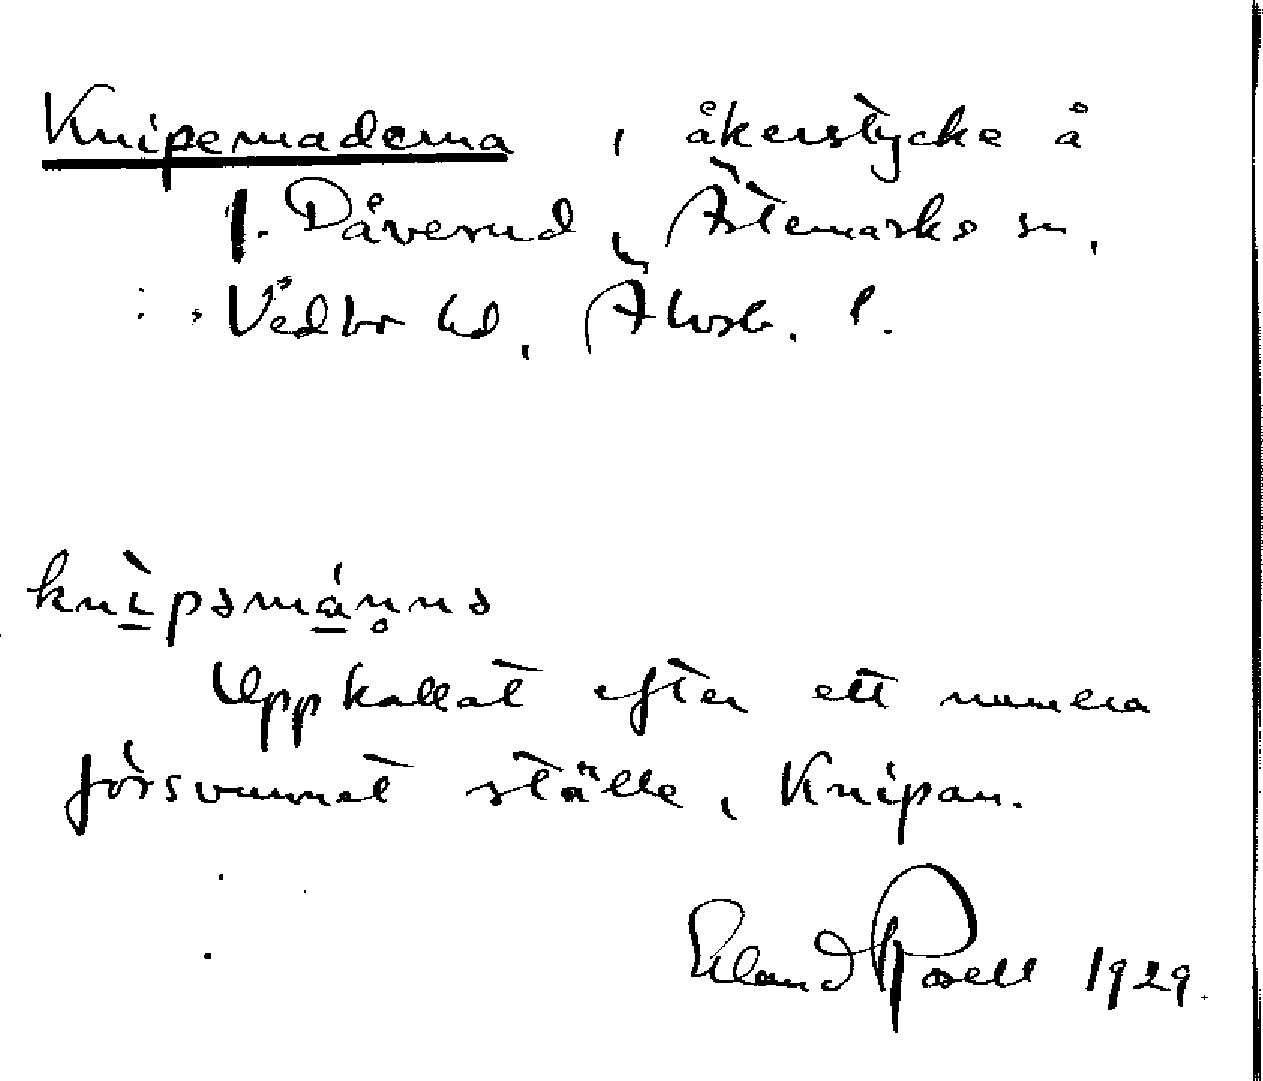 Knipemaderna, åkerstycke å
1. Dåverud, Ärtemarks sn,
Vedbo hd, Älvsb. l.
knìpəmánnə
Uppkallat efter ett numera
försvunnet ställe, Knipan.
Erland Rosell 1929.